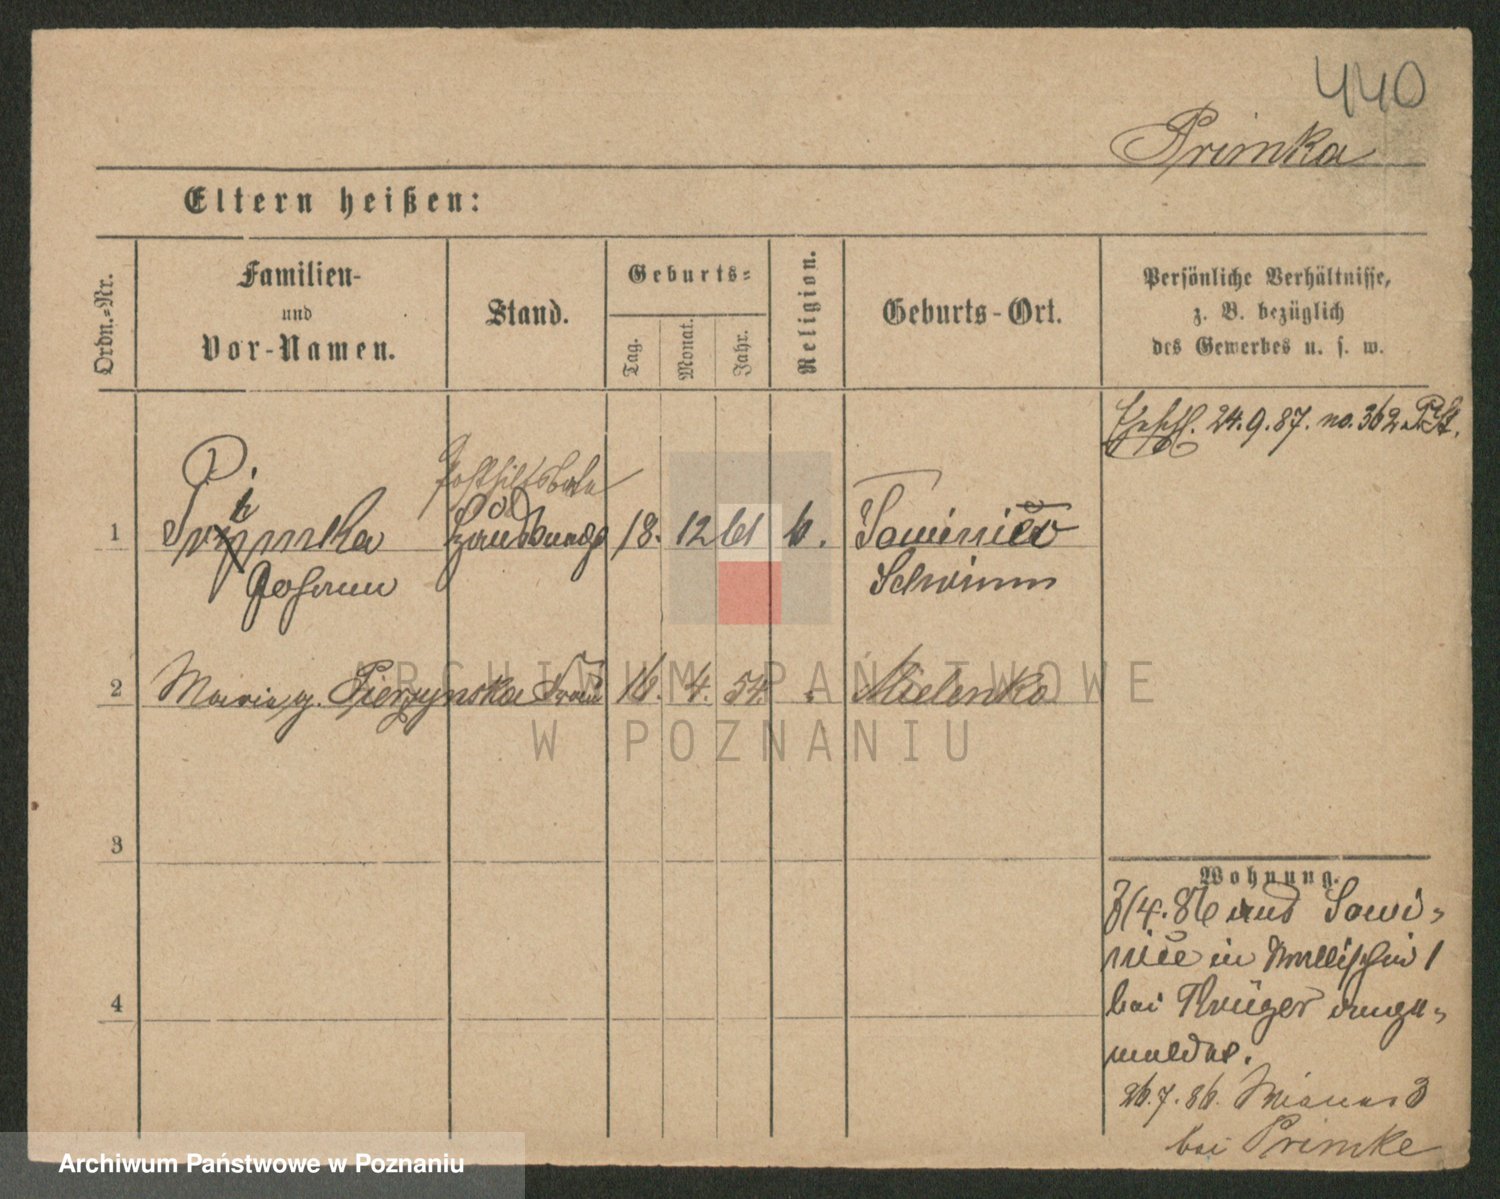 440
Primka
Eltern heißen:
Ordn.-Nr.
Familien-
und
Vor-Namen.
Stand.
Geburts-
Tag.
Monat.
Jahr.
Religion.
Geburts-Ort.
Persönliche Verhältnisse,
z. B. bezüglich
des Gewerbes u. s. w.
24.9.87. no. 362
1 Primka 18. 12 61 k.
Johann Schrimm
2 Maria g. Pierzynska Frau 16. 4. 54. Mielenko
3
4
Wohnung.
3/4.86 aus Sowi-
niec in Wallischei 1
bei Krüger ange-
meldet.
26.7.86. 3
bei Primke
ARCHIWUM PAŃSTWOWE
W POZNANIU
Archiwum Państwowe w Poznaniu